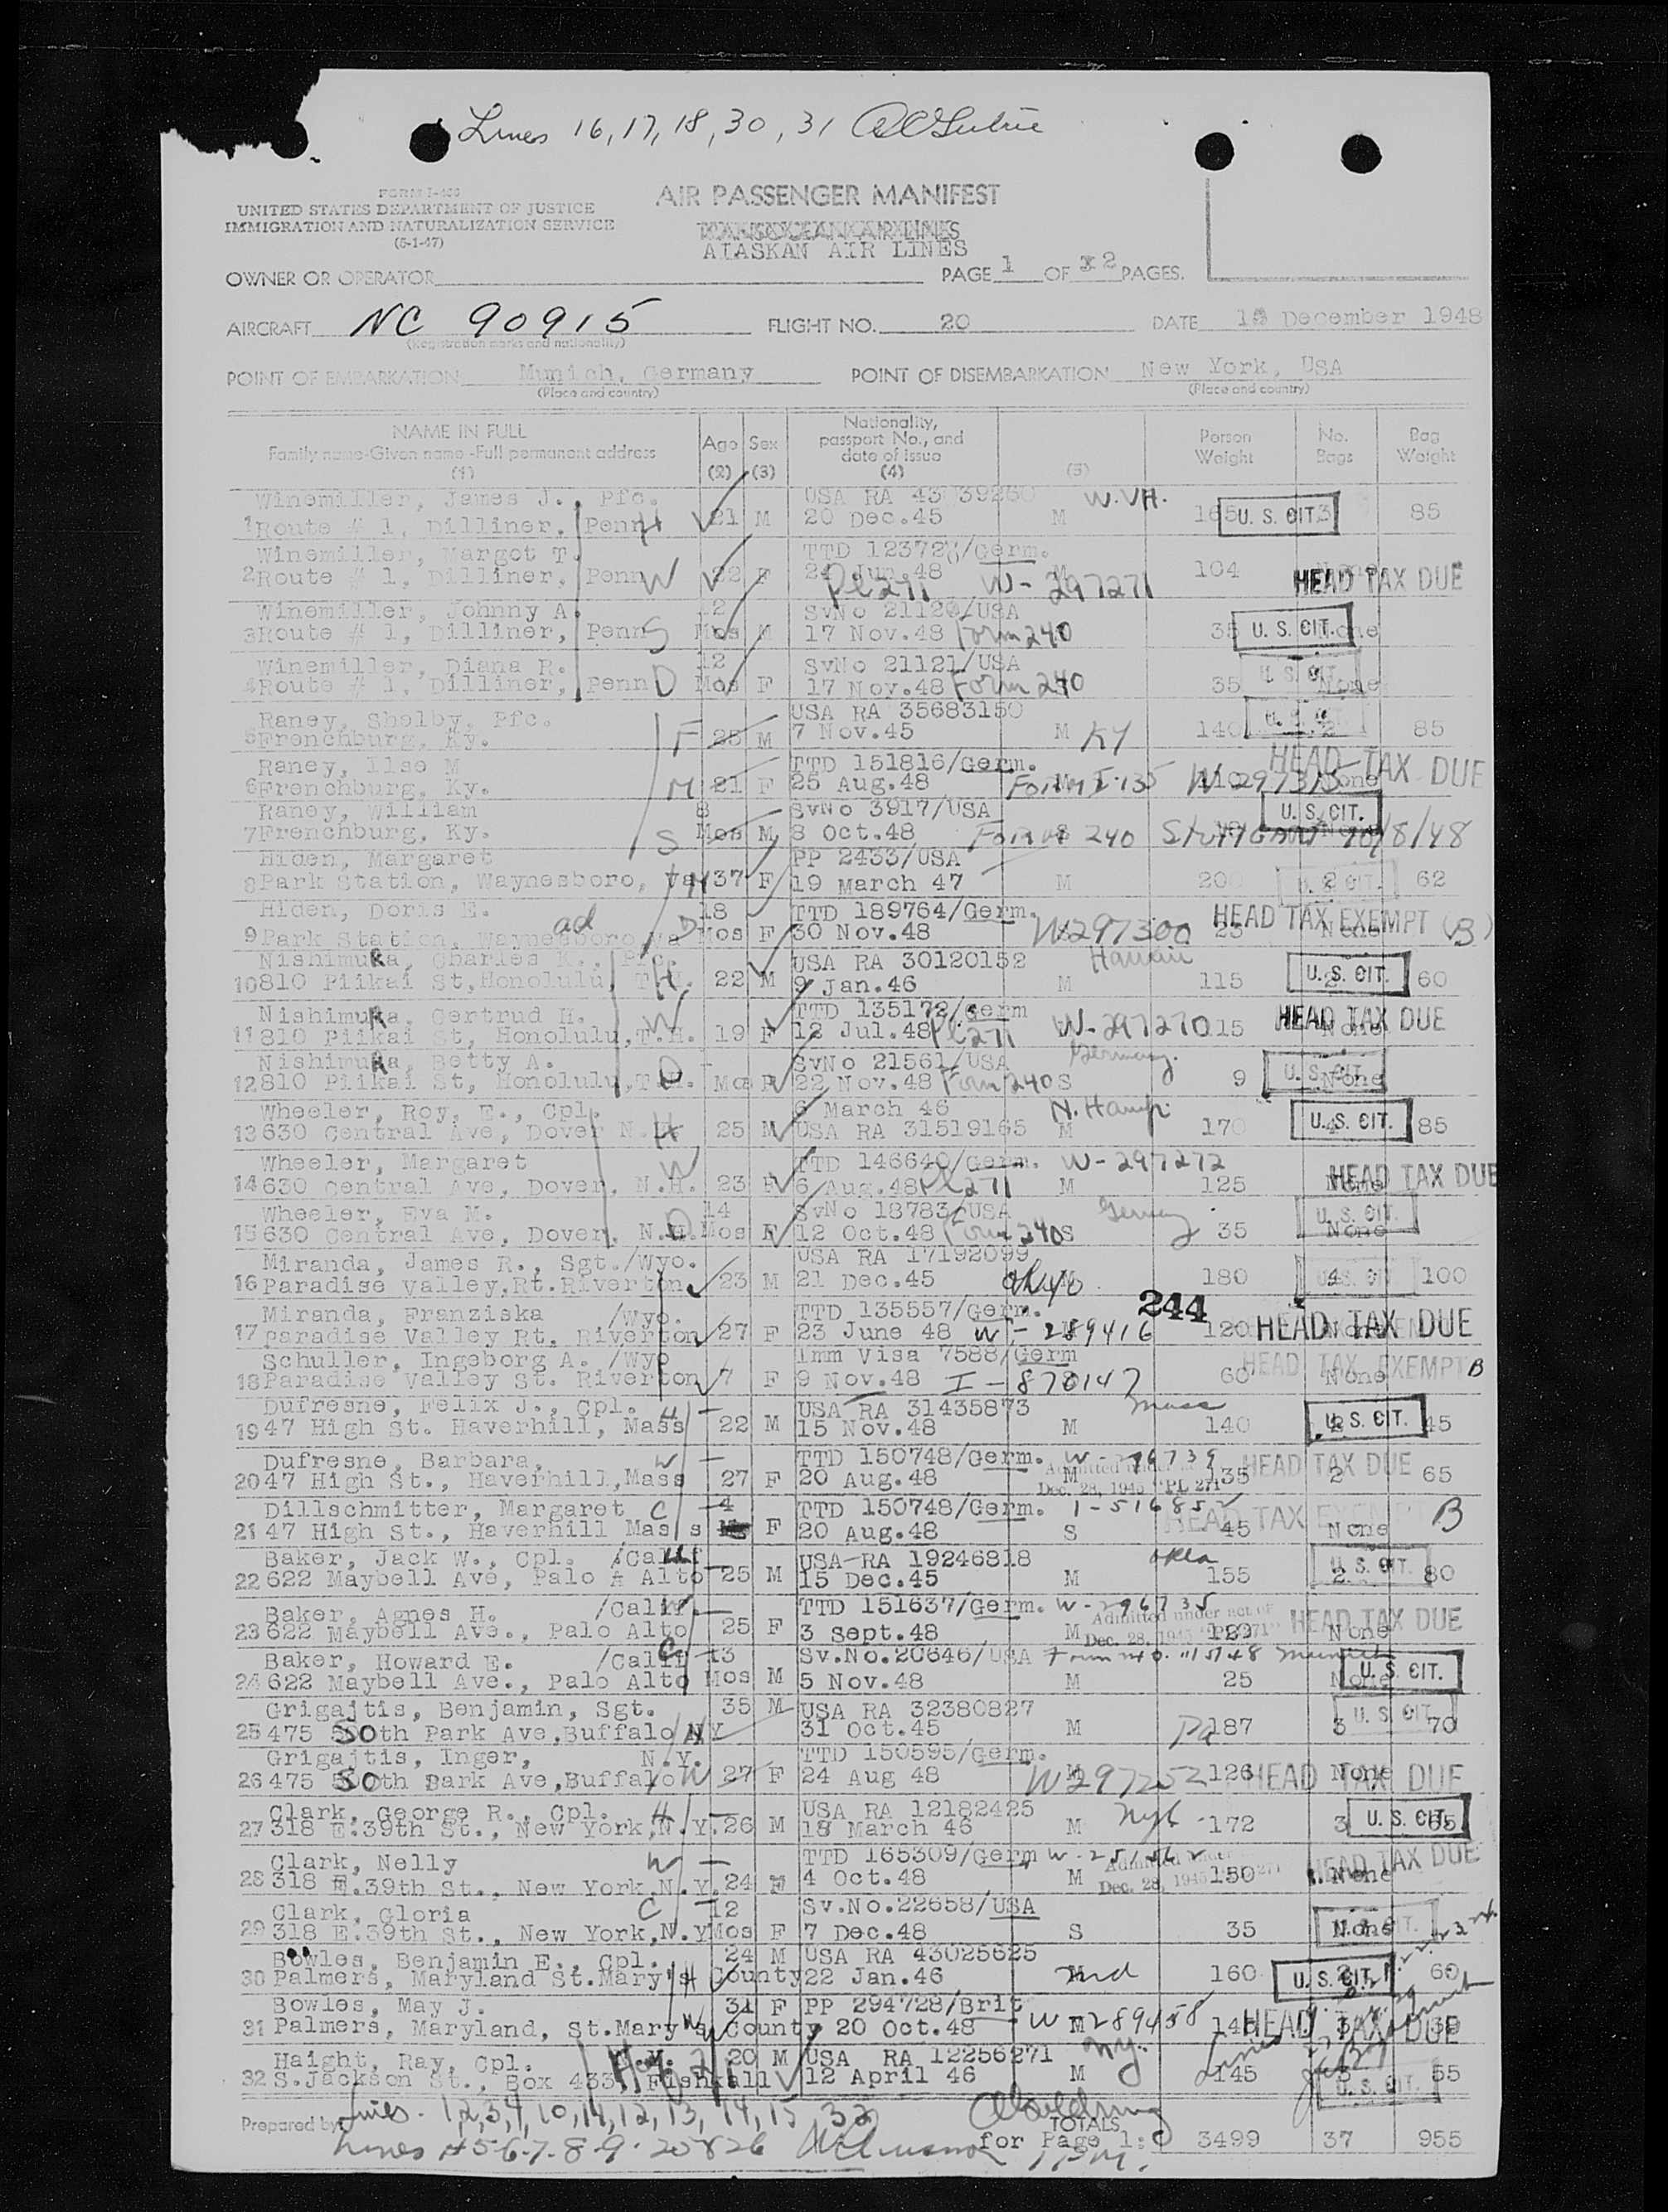 Lines 16, 17, 18, 30, 31
FORM I-466
UNITED STATES DEPARTMENT OF JUSTICE
IMMIGRATION AND NATURALIZATION SERVICE
(5-1-47)
AIR PASSENGER MANIFEST
ALASKAN AIR LINES
OWNER OR OPERATOR
PAGE 1 OF 2 PAGES.
AIRCRAFT NC 90915 FLIGHT NO. 20 DATE December 1948
(Registration marks and nationality)
POINT OF EMBARKATION Munich, Germany POINT OF DISEMBARKATION New York, USA
(Place and country) (Place and country)
NAME IN FULL Age Sex Nationality, passport No., and date of issue Person Weight No. Bags Bag Weight
Family name-Given name-Full permanent address
(1) (2) (3) (4) (5)
Winemiller, James J., Pfc. USA RA 43 W.VA.
1 Route # 1, Dilliner, Penn H 21 M 20 Dec.45 M 165 U. S. CIT. 3 85
Winemiller, Margot T. TTD /Germ.
2 Route # 1, Dilliner, Penn W 22 F 24 Jun.48 PL271 W-297271 104 HEAD TAX DUE
Winemiller, Johnny A. 12 SvNo 21120/USA
3 Route # 1, Dilliner, Penn S Mos M 17 Nov.48 Form 240 35 U. S. CIT. None
Winemiller, Diana R. 12 SvNo 21121/USA
4 Route # 1, Dilliner, Penn D Mos F 17 Nov.48 Form 240 35 U. S. CIT. None
Raney, Shelby, Pfc. USA RA 35683150
5 Frenchburg, Ky. F 25 M 7 Nov.45 M KY 140 U. S. CIT. 2 85
Raney, Ilse M TTD 151816/Germ.
6 Frenchburg, Ky. M 21 F 25 Aug.48 Form I-135 W 297315 None HEAD TAX DUE
Raney, William 8 SvNo 3917/USA U. S. CIT.
7 Frenchburg, Ky. S Mos M 8 Oct.48 Form 240 Stuttgart 10/8/48
Hiden, Margaret PP 2433/USA
8 Park Station, Waynesboro, Va 37 F 19 March 47 M 200 2 U. S. CIT. 62
Hiden, Doris E. 18 TTD 189764/Germ.
9 Park Station, Waynesboro, Va D Mos F 30 Nov.48 W297300 25 None HEAD TAX EXEMPT (B)
Nishimura, Charles K., Pfc. USA RA 30120152 Hawaii
10 810 Piikai St, Honolulu, T.H. 22 M 9 Jan.46 M 115 U. S. CIT. 60
Nishimura, Gertrud H. W TTD 135172/Germ
11 810 Piikai St, Honolulu, T.H. 19 F 12 Jul.48 PL271 W-297270 115 None HEAD TAX DUE
Nishimura, Betty A. D SvNo 21561/USA Germany
12 810 Piikai St, Honolulu, T.H. F 22 Nov.48 Form 240 S 9 U. S. CIT. None
Wheeler, Roy, E., Cpl. 6 March 46 N. Hamp.
13 630 Central Ave, Dover N.H. 25 M USA RA 31519165 M 170 U. S. CIT. 85
Wheeler, Margaret W TTD 146640/Germ. W-297272
14 630 Central Ave, Dover, N.H. 23 F 6 Aug.48 PL271 M 125 None HEAD TAX DUE
Wheeler, Eva M. 14 SvNo 18783/USA Germany
15 630 Central Ave, Dover, N.H. Mos F 12 Oct.48 Form 240 S 35 U. S. CIT. None
Miranda, James R., Sgt./Wyo. USA RA 17192099
16 Paradise Valley,Rt.Riverton 23 M 21 Dec.45 180 4 U. S. CIT. 100
Miranda, Franziska /Wyo. TTD 135557/Germ. 244
17 Paradise Valley Rt. Riverton 27 F 23 June 48 W-289416 120 None HEAD TAX DUE
Schuller, Ingeborg A. /Wyo Imm Visa 7588/Germ
18 Paradise Valley St. Riverton 7 F 9 Nov.48 I-878147 60 None HEAD TAX EXEMPT B
Dufresne, Felix J., Cpl. H USA RA 31435873 Mass
19 47 High St. Haverhill, Mass 22 M 15 Nov.48 M 140 U. S. CIT. 45
Dufresne, Barbara, W TTD 150748/Germ. W-296739
20 47 High St., Haverhill, Mass 27 F 20 Aug.48 M Admitted under Dec. 28, 1945 "PL 271" 135 2 HEAD TAX DUE 65
Dillschmitter, Margaret C 4 TTD 150748/Germ. I-516852
21 47 High St., Haverhill Mass F 20 Aug.48 S 45 None HEAD TAX EXEMPT B
Baker, Jack W., Cpl. /Calif USA-RA 19246818 Okla
22 622 Maybell Ave, Palo A Alto 25 M 15 Dec.45 M 155 2 U. S. CIT. 80
Baker, Agnes H. /Calif. TTD 151637/Germ. W-296735
23 622 Maybell Ave., Palo Alto 25 F 3 Sept.48 M Admitted under act of Dec. 28, 1945 "PL 271" None HEAD TAX DUE
Baker, Howard E. C /Calif 13 Sv.No.20646/USA Form 240. 11/5/48 Munich
24 622 Maybell Ave., Palo Alto Mos M 5 Nov.48 M 25 None U. S. CIT.
Grigajtis, Benjamin, Sgt. 35 M USA RA 32380827
25 475 SOth Park Ave,Buffalo NY 31 Oct.45 M Pa 187 3 U. S. CIT. 70
Grigajtis, Inger, N.Y. TTD 150595/Germ.
26 475 SOth Park Ave,Buffalo W 27 F 24 Aug 48 W297252 126 None HEAD TAX DUE
Clark, George R., Cpl. H USA RA 12182425
27 318 E.39th St., New York,N.Y. 26 M 18 March 46 M NYC 172 3 U. S. CIT. 65
Clark, Nelly W TTD 165309/Germ
28 318 E.39th St., New York,N.Y. 24 F 4 Oct.48 M Dec. 28, 1945 150 None HEAD TAX DUE
Clark, Gloria C 12 Sv.No.22658/USA
29 318 E.39th St., New York,N.Y Mos F 7 Dec.48 S 35 None
Bowles, Benjamin E., Cpl. 24 M USA RA 43025625
30 Palmers, Maryland St.Mary's County 22 Jan.46 Md 160 U. S. CIT. 60
Bowles, May J. 31 F PP 294728/Brit
31 Palmers, Maryland, St.Mary's County 20 Oct.48 W 289458 HEAD TAX DUE
Haight, Ray, Cpl. 20 M USA RA 12256271 N.Y.
32 S.Jackson St., Box 433, Fishkill 12 April 46 M 145 3 U. S. CIT. 55
Prepared by Lines. 1,2,3,4,10,11,12,13,14,15,32
TOTALS
Lines # 5-6-7-8-9-25 & 26
for Page 1: 3499 37 955